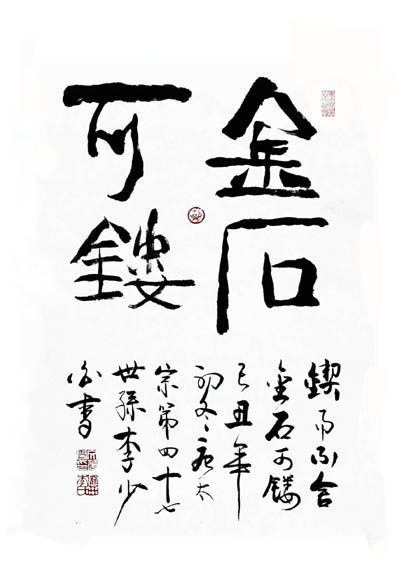 金石
可鏤
鍥而不舍
金石可鏤
己丑年
初冬唐太
宗第四十七
世孫李少
白書